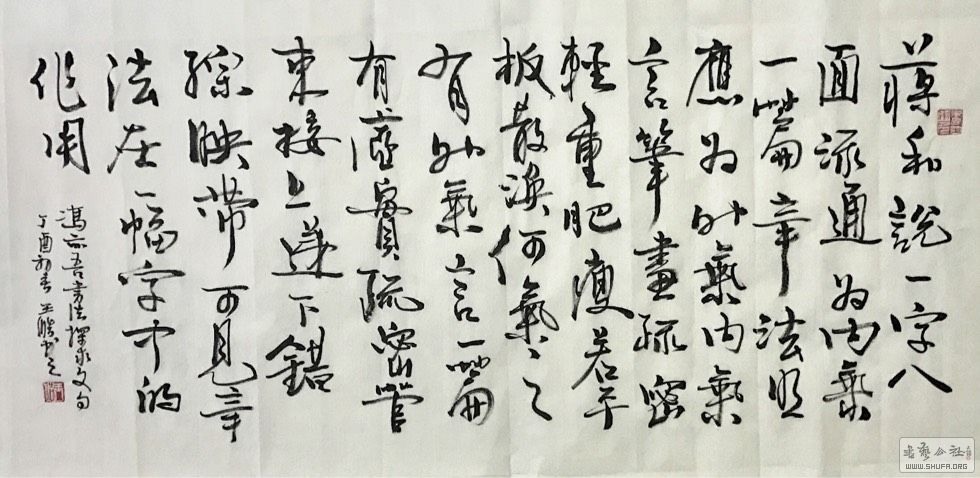 蔣和說一字八
面流通为内氣
一篇章法照
應为外氣内氣
言筆畫疏密
輕重肥瘦若平
板散涣何氣之
有外氣言一篇
有虛實疏密管
束接上遞下錯
綜映帶可見章
法在一幅字中的
作用
馮亦吾書法探求文句
丁酉初春 王書之
書藝公社
WWW.SHUFA.ORG